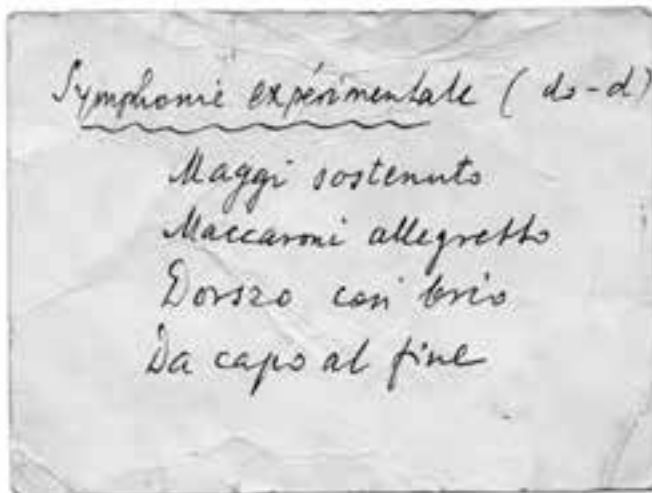 Symphonie expérimentale ( do-d )
Maggi sostenuto
Maccaroni allegretto
Dorszo con brio
Da capo al fine